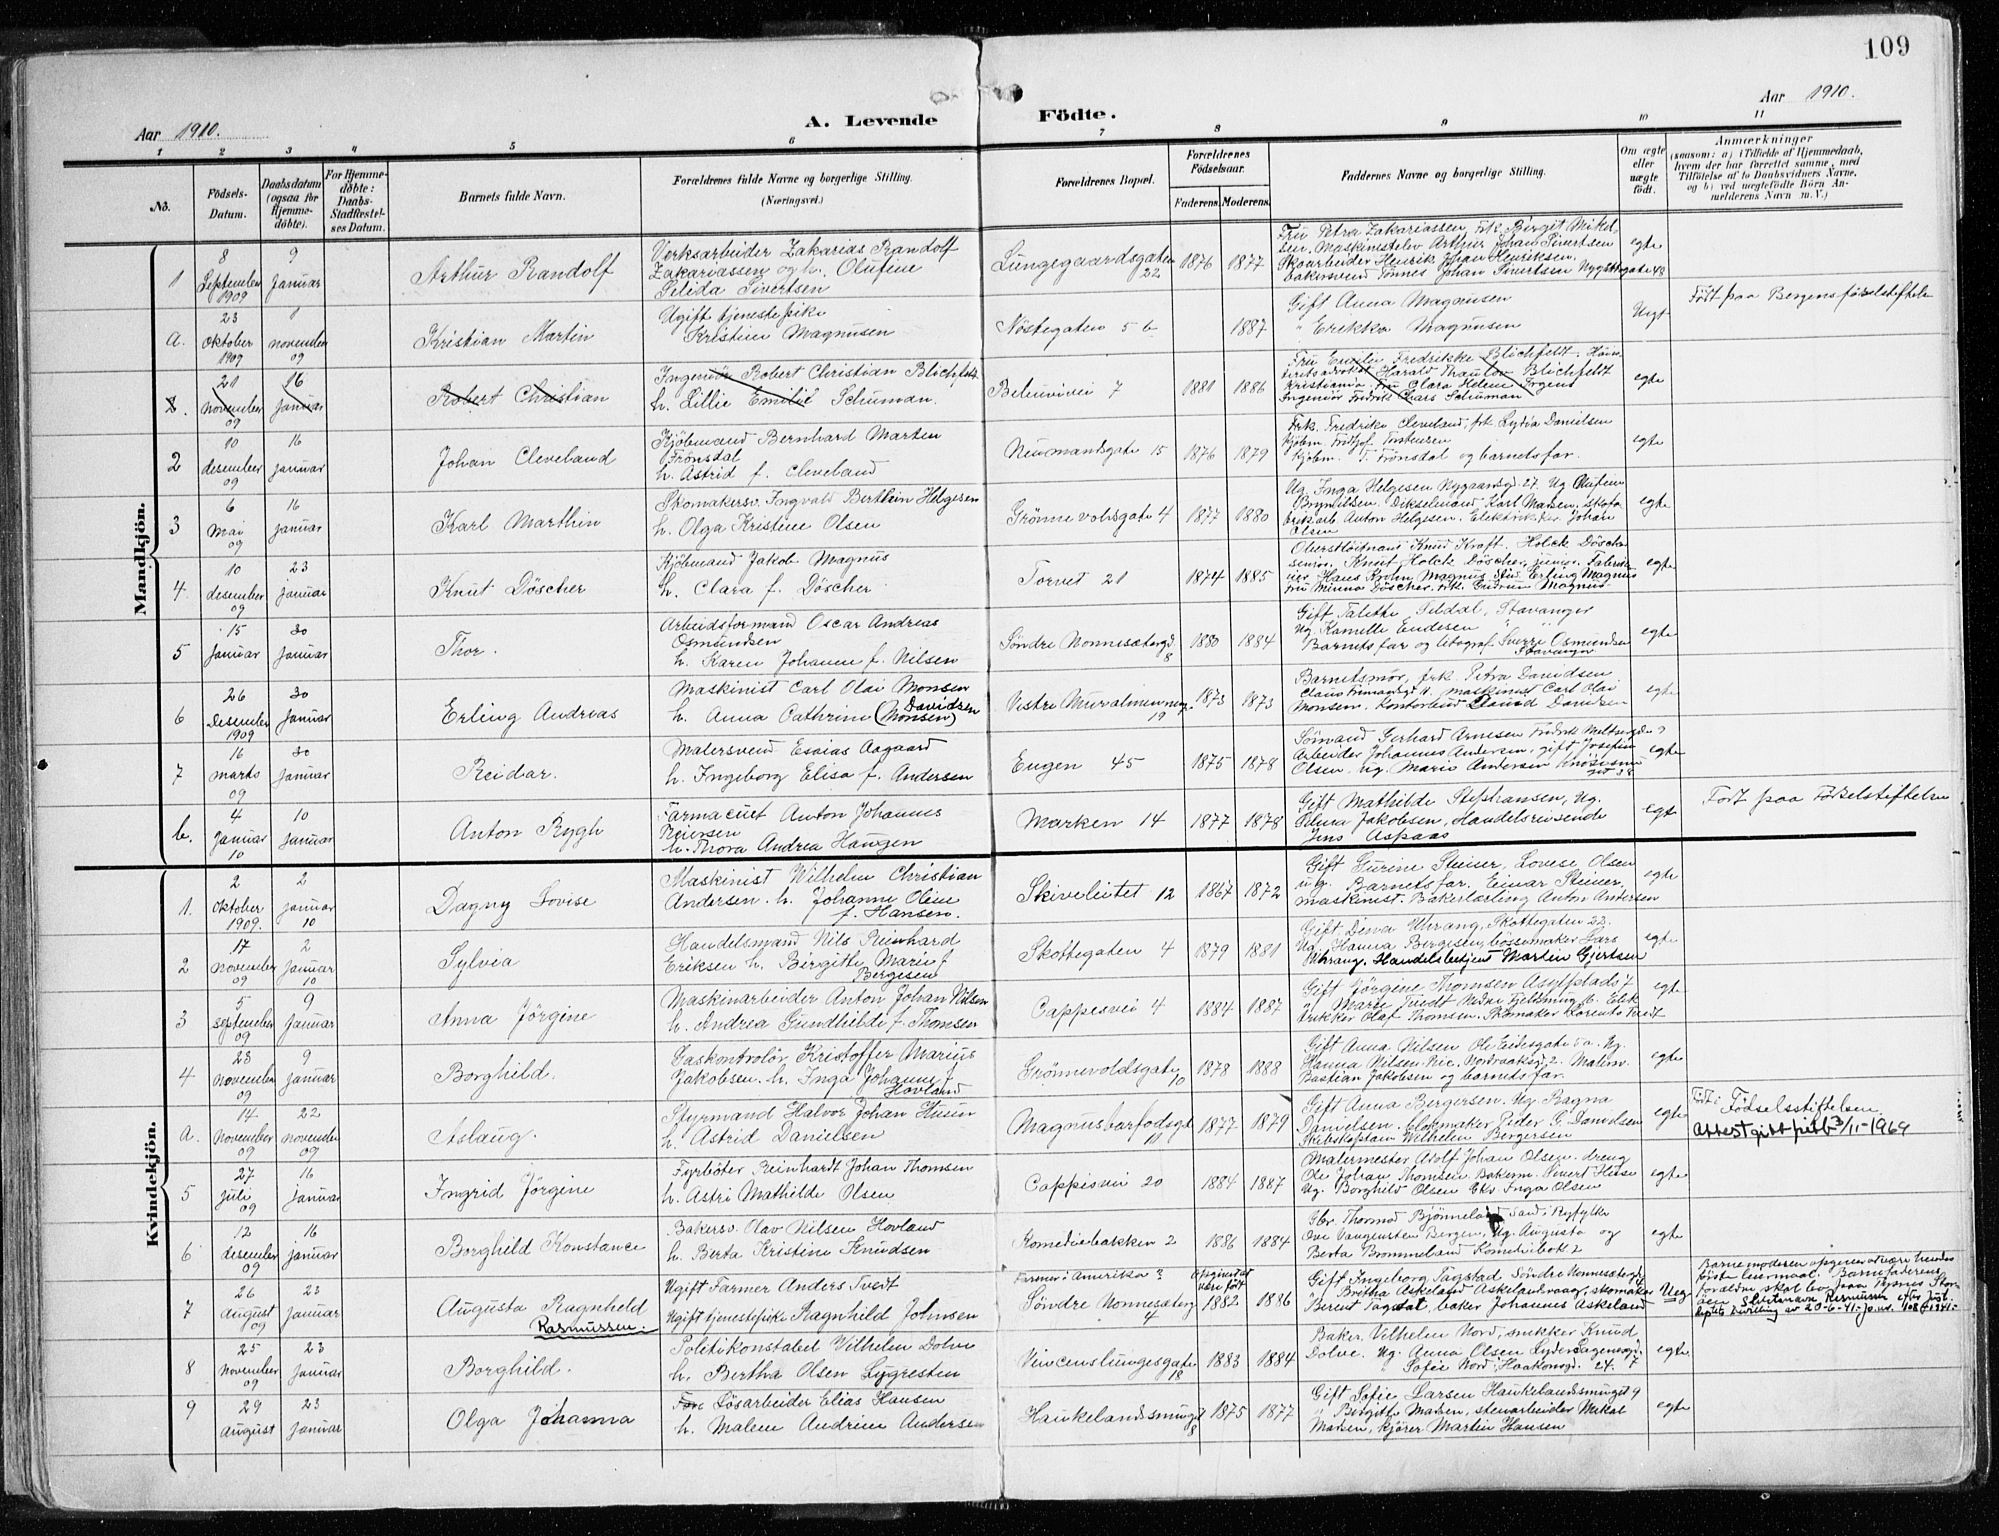 109
Aar 1910.
A. Levende Födte.
Aar 1910.
1 2 3 4 5 6 7 8 9 10 11
No.
Födsels-Datum.
Daabsdatum (ogsaa for Hjemme-döbte).
For Hjemme-döbte: Daabs-Stadfæstel-ses Datum.
Barnets fulde Navn.
Forældrenes fulde Navne og borgerlige Stilling. (Næringsvei.)
Forældrenes Bopæl.
Forældrenes Födselsaar.
Faderens. Moderens.
Faddernes Navne og borgerlige Stilling.
Om ægte eller uægte födt.
Anmærkninger
(saasom: a) i Tilfælde af Hjemmedaab, hvem der har forrettet samme, med Tilföielse af to Daabsvidners Navne, og b) ved uægtefödte Börn An-melderens Navn m. V.)
Mandkjön.
1
8 September 1909
9 Januar
Arthur Randolf
Verksarbeider Zakarias Randolf
Zakariassen og h. Olufine
Selida Sivertsen
Lungegaardsgaten 22
1876 1877
Fru Petra Zakariassen, frk Birgit Mikel-
sen, Maskinistelev Arthur Johan Sivertsen
Skoarbeider Henrik Johan Henriksen,
bakersvend Tønnes Johan Sivertsen Nygaardsgate 48
egte
a.
23 oktober 1909
november 09
Kristian Martin
Ugift tjenestepike
Kristine Magnusen
Nøstegaten 5 b
1887
Gift Anna Magnusen
" Erikka Magnusen
Uegt
Født paa Bergens fødselstiftelse
2.
21 november 09
16 januar
Robert Christian
Ingeniør Robert Christian Blichfeldt
h. Lillie Emilie Schuman.
Bellevuevei 7
1881 1886
Fru Emilie Fredrikke Blichfeldt. Høie-
retsadvokat Harald Thaulow Blichfeldt
Kristiania. Fru Clara Helene Irgens
Ingeniør Fredrik Lars Schuman
egte
2
10 desember 09
16 januar
Johan Cleveland
Kjøbmand Bernhard Marten
Frønsdal
h. Astrid f. Cleveland
Neumandsgate 15
1876 1879
Frk. Fredrikke Cleveland, frk. Lydia Danielsen
Kjøbm. Fridtjof Torstensen
Kjøbm. T. Frønsdal og barnets far.
egte
3
6 mai 09
16 januar
Karl Marthin
Skomakersv. Ingvald Berthin Helgesen
h. Olga Kristine Olsen
Grønnevolsgate 4
1877 1880
Ug. Inga Helgesen Nygaardsgd. 27. Ug Olufine
Brynildsen. Dikselmand Karl Madsen, skofa-
brikarb. Anton Helgesen. Elektriker Johan
Olsen
egte
4.
10 desember 09
23 januar
Knut Döscher
Kjøbmand Jakob Magnus
h. Clara f. Döscher
Torvet 21
1874 1885
Oberstløitnant Knud Kraft. Holck Döscher
senior. Knut Holck Döscher, junior.
Hans Krohn Magnus Stud Erling Magnus
fru Minna Döscher. frk. Gudrun Magnus
egte
5
15 Januar
30 Januar
Thor.
Arbeidsformand Oscar Andreas
Osmundsen
h. Karen Johanne f. Nilsen
Søndre Nonnesætergd. 8
1880 1884
Gift Talette Seldal, Stavanger
Ug. Kamelle Endesen " "
Barnets far og litograf Sverre Osmundsen
Stavanger
egte
6
26 Desember 1909
30 Januar
Erling Andreas
Maskinist Carl Olai Monsen
h. Anna Cathrine (Monsen) Davidsen
Vestre Muralmenning 19
1873 1873
Barnets mor, frk. Petra Davidsen
Claus Frimandsgd 11. Maskinist Carl Olai
Monsen. Kontorbud David Davidsen
egte
7
16 marts 09
30 Januar
Reidar.
Malersvend Esaias Aagaard
h. Ingeborg Elisa f. Andersen
Engen 45
1875 1878
Sømand Gerhard Arnesen Fredrik Meltzersgd 7
Arbeider Johannes Andersen, gift Josefine
Olsen. Ug. Marie Andersen Knøsesmuget 38
egte
b.
4 Januar 10
10 Januar
Anton Rygh
Farmaceut Anton Johannes
Reiersen
h. Thora Andrea Haugen
Marken 14
1877 1878
Gift Mathilde Stephansen, Ug.
Jakobsen, Handelsreisende
Jens Aspaas
egte
Født paa Fødselstiftelse
Kvindekjön.
1.
2 oktober 1909.
2 januar 10
Dagny Lovise
Maskinist Wilhelm Christian
Andersen. h. Johanne Oline
f. Hansen.
Skiveleitet 12
1867 1872
Gift Gurine Steiner, Lovese Olsen
ug. Barnets far, Einar Steiner,
maskinist. Bakerlærling Anton Andersen
egte
2
17 november 09
2 Januar 10
Sylvia
Handelsmand Nils Reinhard
Eriksen h. Birgitte Marie f
Bergesen
Skottegaten 4
1879 1881
Gift Dina Uhrang, Skottegaten 22.
Ug. Hanna Bergesen, bøssemaker Lars
Uhrang. Handelsbetjent Martin Gjertsen
egte
3
5 september 09
9 Januar
Anna Jörgine
Maskinarbeider Anton Johan Nilsen
h. Andrea Gundhilde f. Thomsen
Cappesvei 4
1884 1887
Gift Jörgine Thomsen Asylpladsen 7
" Marie Tvedt Nedre Fjeldsmug 6. Elek-
triker Olaf Thomsen. Skomaker Lorents Tvedt
egte
4
23 november 09
9 januar
Borghild.
Gaskontrolör Kristoffer Marius
Jakobsen. h. Inga Johanne f
Hovland
Grønnevoldsgate 10
1878 1888
Gift Anna Nilsen Ole Eidesgate 5a. Ug.
Hanna Nilsen Nordraaksgd 2. Malerm.
Bastian Jakobsen og barnets far.
egte
a.
14 November 09
22 november 09
Aslaug.
Styrmand Halvor Johan Husun
h. Astrid Danielsen
Magnusbarfodsgt 11
1877 1879
Gift Anna Bergersen. Ug. Ragna
Danielsen. Blokmaker Peder G. Danielsen
Skibskaptain Wilhelm Bergersen
egte
Født i Födselsstiftelsen.
Attest gitt 3/11-1969
5
27 juli 09
16 januar
Ingrid Jörgine
Fyrbøter Reinhardt Johan Thomsen
h. Astri Mathilde Olsen
Cappesvei 20
1884 1887
Malermester Adolf Johan Olsen. dreng
Ole Johan Thomsen Bakerm. Sivert Huse
Ug. Borghild Olsen Eks. Inga Olsen
egte
6
12 desember 09
16 januar
Borghild Konstance
Bakersv. Olav Nilsen Hovland
h. Berta Kristine Knudsen
Komediebakken 2
1886 1884
Gbr. Thormod Bjönneland Sand i Ryfylke
Ove Vangensten Bergen, Ug Augusta og
Berta Brommeland Komediebak 2
egte
7
26 august 09
23 januar
Augusta Ragnhild
Rasmussen.
Ugift Farmer Anders Tvedt
Ugift tjenestepike Ragnhild Johnsen
Farmer i Amerika ?
Søndre Nonnesæterg 4
opgives at være født
1882 1886
Gift Ingeborg Tagstad Søndre Nonnesæterg 4
" Britha Askeland Askelandvaag, skomaker
Berent Tagstad, baker Johannes Askeland
Ueg
Barnemoderen opgiver at være hendes
første leiermaal. Barnefaderens
foreldre skal bo paa Tysnes Stor-
öen. Slektsnavn Rasmussen efter Just.
depts bevilling av 20-6-41. J.nr. 1081-1941.
8
25 november 09
23 Januar
Borghild.
Politikonstabel Wilhelm Dolve
h. Bertha Olsen Lygresten
Vincenslungesgate 18
1883 1884
Baker Vilhelm Nord, snekker Knud
Dolve. Ug. Anna Olsen Lyder Sagensgd. 7
Sofie Nord, Haakonsgd. 27.
egte
9
29 august
23 januar
Olga Johanna
Løsarbeider Elias Hansen
h. Malene Andrine Andersen
Haukelandsmuget 8
1875 1877
Gift Sofie Larsen Haukelandsmuget 9
" Birgitte Madsen, stenarbeider Mikal
Madsen, kjører Martin Hansen
egte